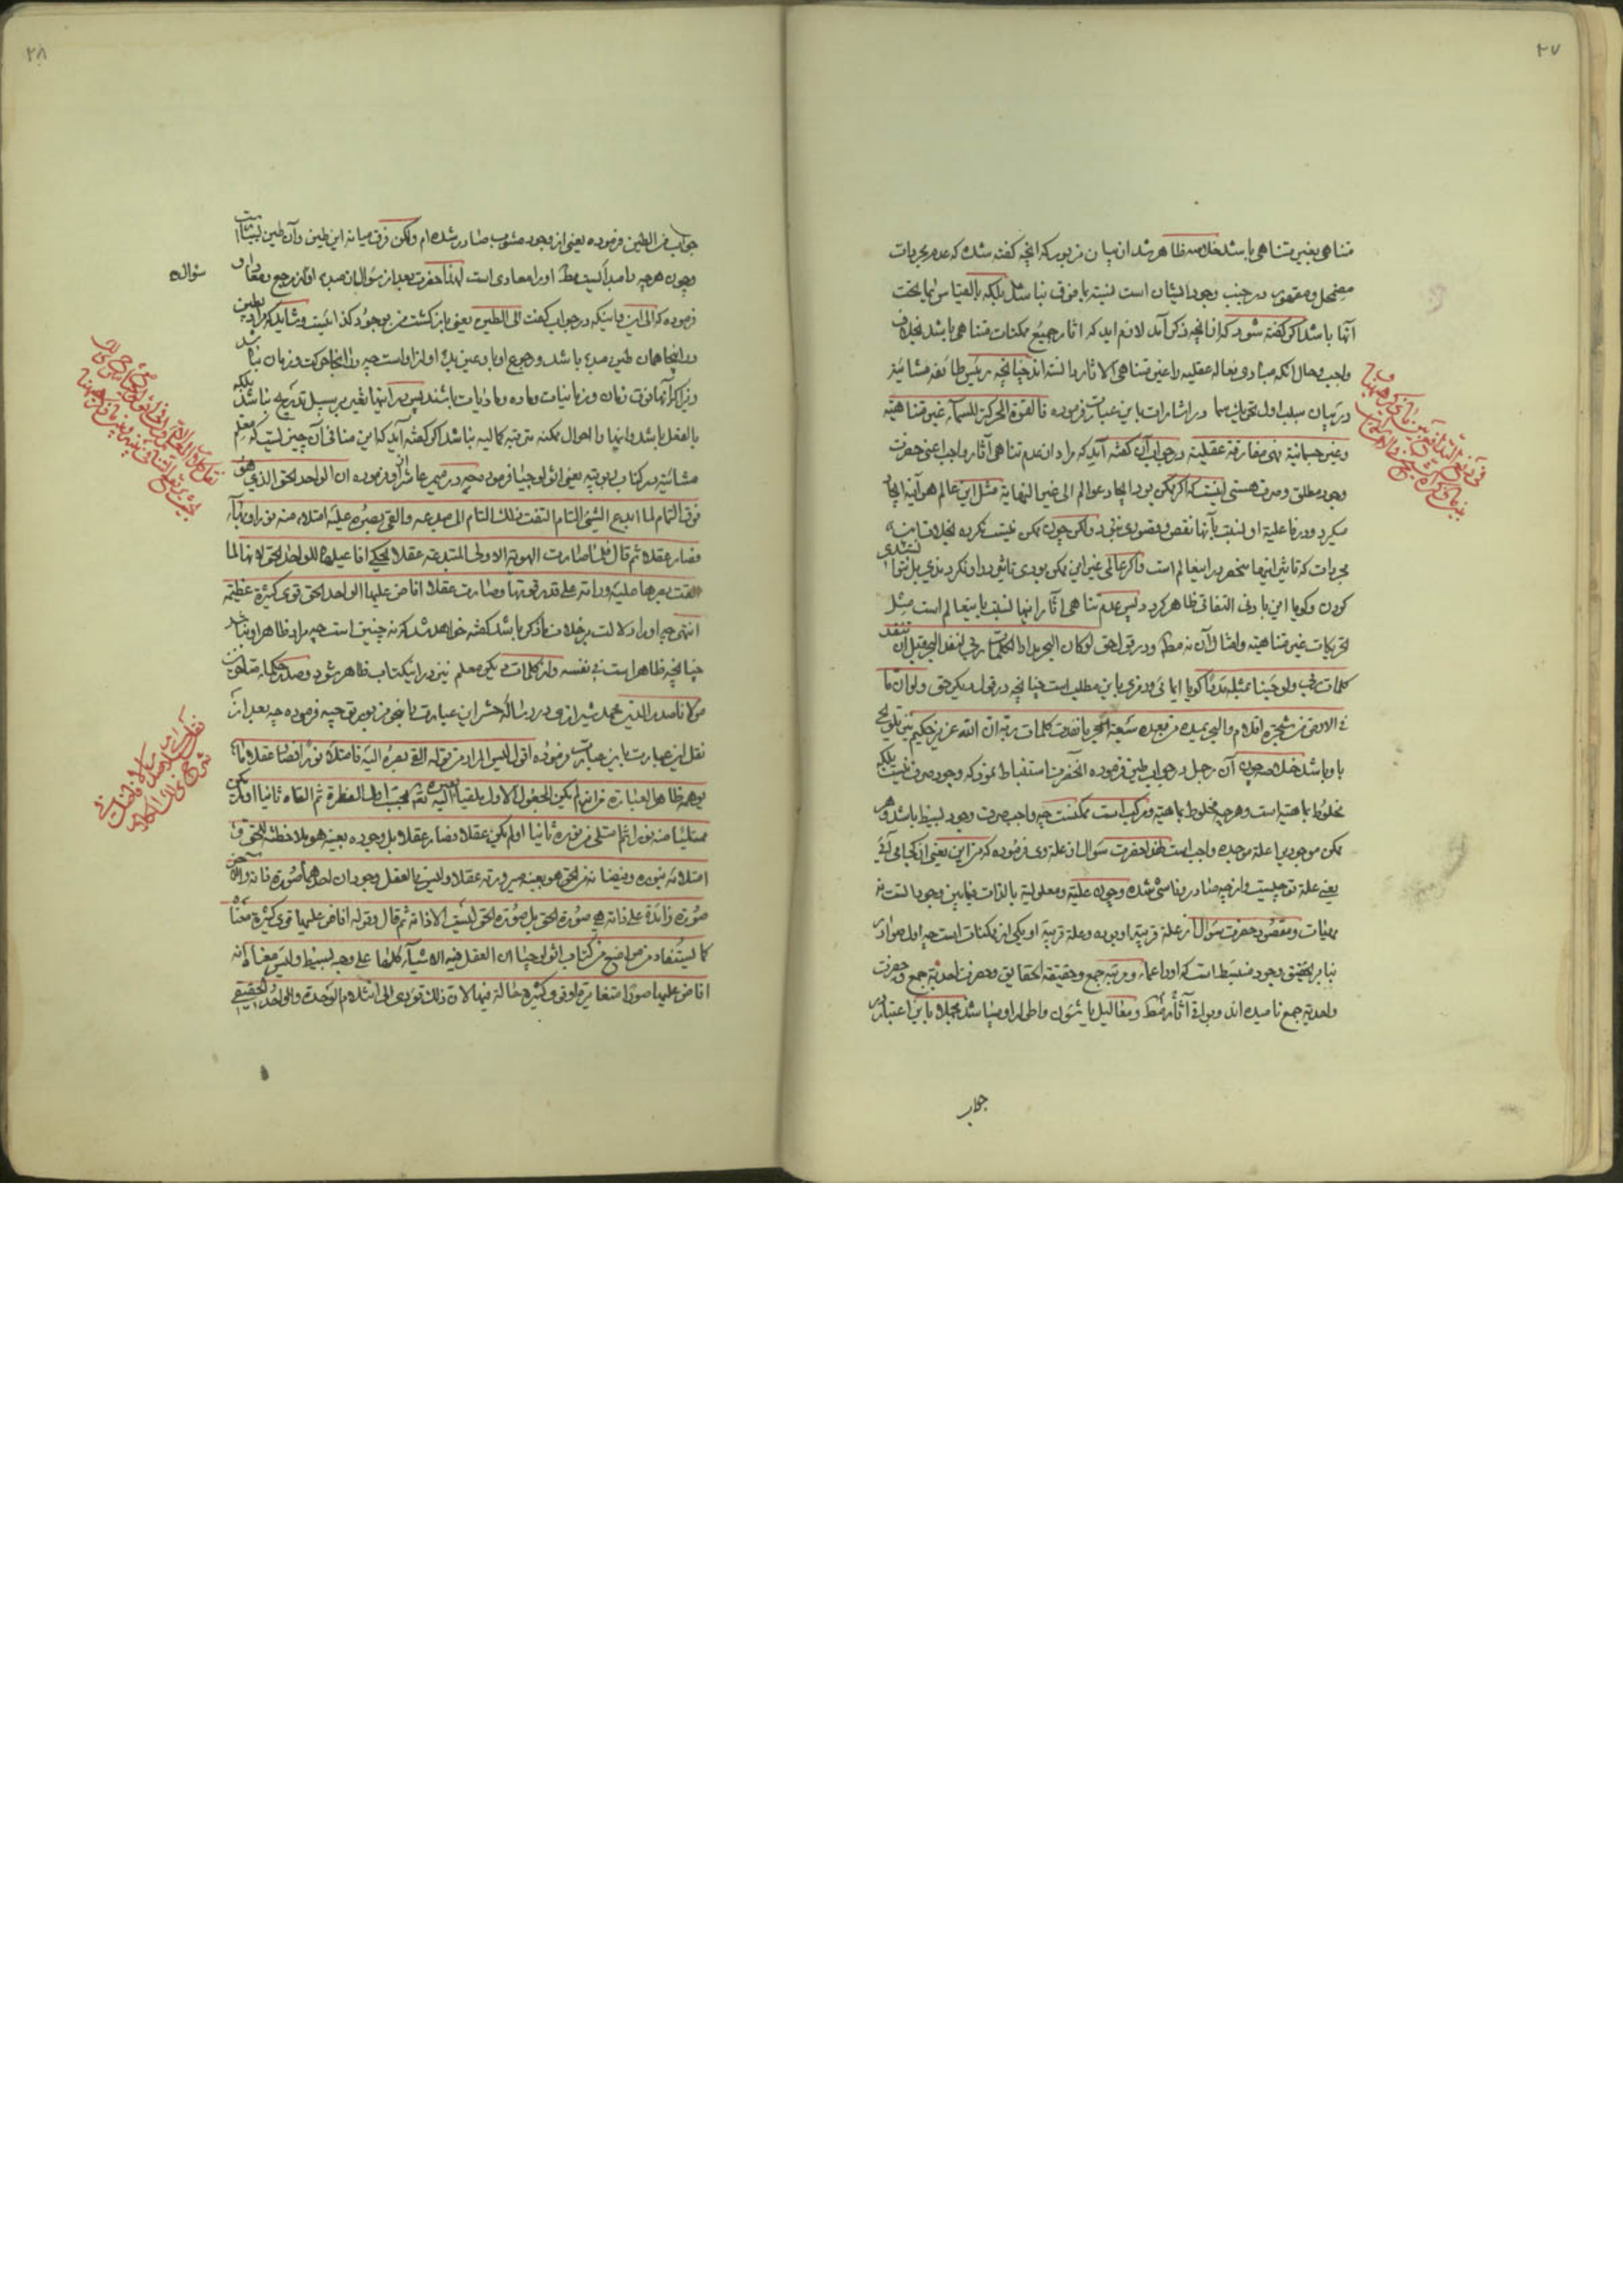 ٢٧
متناهی بغیر متناهی باشد خلاصه ظاهر شد از بیان مزبور که آنچه گفته شده که عدم مجردات
مضمحل و مقهور در جنب وجود ایشان است نسبت با فوق نباشد بلکه بالقیاس بماتحت
آنها باشد اگر گفته شود که از آنچه ذکر آمد لازم اید که اثار جمیع ممکنات متناهی باشد بخلاف
واجب و حال انکه مبادی عالیه عقلیه را غیر متناهی الاثار دانسته اند چنانچه رئیس طائفه مشائیه
در بیان سلب اول تحریک سما در اشارات باین عبارت فرموده فالقوة المحرکة للسماء غیر متناهیة
و غیر جسمانیة فهی مفارقة عقلیة در جواب آن گفته آید که مراد از عدم تناهی آثار واجب اعنی حضرت
وجود مطلق و صرف هستی اینست که اگر ممکن بود ایجاد عوالم الی غیر النهایة مثل این عالم هر آینه ایجاد
میکرد و در فاعلیة او نسبت بآنها نقص و قصوری نبود ولکن چون ممکن نیست نکرده بخلاف
مجردات که تاثیر اینها منحصر در اینعالم است و اگر عالمی غیر این ممکن بودی تاثیر در او نکردندی بل نتوانستندی
کردن و گویا این بادنی التفاتی ظاهر گردد پس عدم تناهی آثار اینها نسبت باینعالم است مثل
تحریکات غیر متناهیه و امثال آن نه مطلقا و در قول حق لو کان البحر مدادا لکلمات ربی لنفد البحر قبل ان تنفد
کلمات ربی ولو جئنا بمثله مددا گویا ایمائی و رمزی باین مطلب است چنانچه در قول دیگر حق ولو ان ما
فی الارض من شجرة اقلام والبحر یمده من بعده سبعة ابحر ما نفدت کلمات ربه ان الله عزیز حکیم نیز تلویح
باو باشد خلاصه چون آن رجل در جواب طین فرموده آنحضرت استنباط نمود که وجود صرف نیست بلکه
مخلوط بماهیة است و هر چه مخلوط بماهیة و مرکب است ممکنست چه واجب صرف وجود بسیط باشد و هر
ممکن موجودی را علة موجده واجب است لهذا حضرت سؤال از علة وی فرموده که من این یعنی از کجا می آئی
یعنی علة تو چیست و از چه صادر و ناشی شده و چون علیة و معلولیة بالذات فیمابین وجود است نه
مهیات و مقصود حضرت سؤال از علة قریبه او بوده و علة قریبة او یکی از ممکنات است چه اول صوادر
بنابر تحقیق وجود منبسط است که او را عماء و مرتبه جمع و حقیقة الحقایق و حضرت احدیة جمع و حضرت
واحدیة جمع نامیده اند و بواقی آثار فقط و معالیل یا شئون و اطوار او میباشد مجملا باین اعتبار در
جواب
٢٨
جواب من الطین فرموده یعنی از وجود مشوب صادر شده ام ولکن فرق میانه این طین و آن طین بیشتر است
و چون هر چه را مبدأ نیست مطلقا او را معادی است لهذا حضرت بعد از سؤال از مبدء او از مرجع و معاد او
سؤاله
فرموده که الی این تا اینکه در جواب گفت الی الطین یعنی بازگشت من بوجود کذائیست و شاید که مراد بطین
در اینجا همان طین مبدء باشد و رجوع او باو عین بدء او از او است چه در انجا حرکت و زمان نباشد
زیرا که آنها فوق زمان و زمانیات و ماده و مادیات باشند پس در اینها تغیر بر سبیل تدریج نباشد بلکه
بالفعل باشد و اینها را احوال ممکنه مترقبه کمالیه نباشد اگر گفته آید که این منافی آن چیزیست که معلم
مشائیه در کتاب ربوبیه یعنی اثولوجیا فرموده چه در میمر عاشر از او فرموده ان الواحد الحق الذی هو
فوق التمام لما ابدع الشیء التام التفت ذلک التام الی مبدعه والقی بصره علیه امتلاء منه نورا و بهاء
فصار عقلا ثم قال فلما صارت الهویة الاولی المبتدعة عقلا یحکی افاعیلها للواحد الحق لانها لما
القت بصرها علیه و راته علی قدر قوتها و صارت عقلا افاض علیها الواحد الحق قوی کثیرة عظیمة
انتهی چه او را دلالت بر خلاف ما ذکر باشد گفته خواهد شد که نه چنین است چه مراد ظاهر او نباشد
چنانچه ظاهر است فی نفسه و از کلمات دیگر معلم نیز در اینکتاب ظاهر شود و صدر حکماء متالهین
مولانا صدر الدین محمد شیرازی در رساله حشر این عبارت را بنحو مزبور توجیه فرموده چه بعد از
نقل این عبارت باین عبارت فرموده اقول لیس المراد من قوله القی بصره الیه فامتلاء نورا فصار عقلا ما
یوهمه ظاهر العبارة من انه لم یکن المجعول الاول ملقیا بصره الیه تعه بحسب اصل الفطرة ثم القاه ثانیا او لم یکن
ممتلئا منه نورا ثم امتلی من نوره ثانیا او لم یکن عقلا و صار عقلا بل وجوده بعینه هو ملاحظته للحق و
امتلائه بنوره و فیضانه من الحق هو بعینه صیرورته عقلا و لیس بالعقل وجودان احدهما صورة ذاته والاخر
صورة زائدة علی ذاته هی صورة الحق بل صورة الحق لیست الا ذاته ثم قال و قوله افاض علیها قوی کثیرة معناه
کما یستفاد من مواضع من کتاب اثولوجیا ان العقل فیه الاشیاء کلها علی وجه بسیط و لیس معناه انه
افاض علیها صورا متغایرة او قوی کثیرة حالة فیها لان ذلک یؤدی الی انثلام الوحدة والواحد الحقیقی